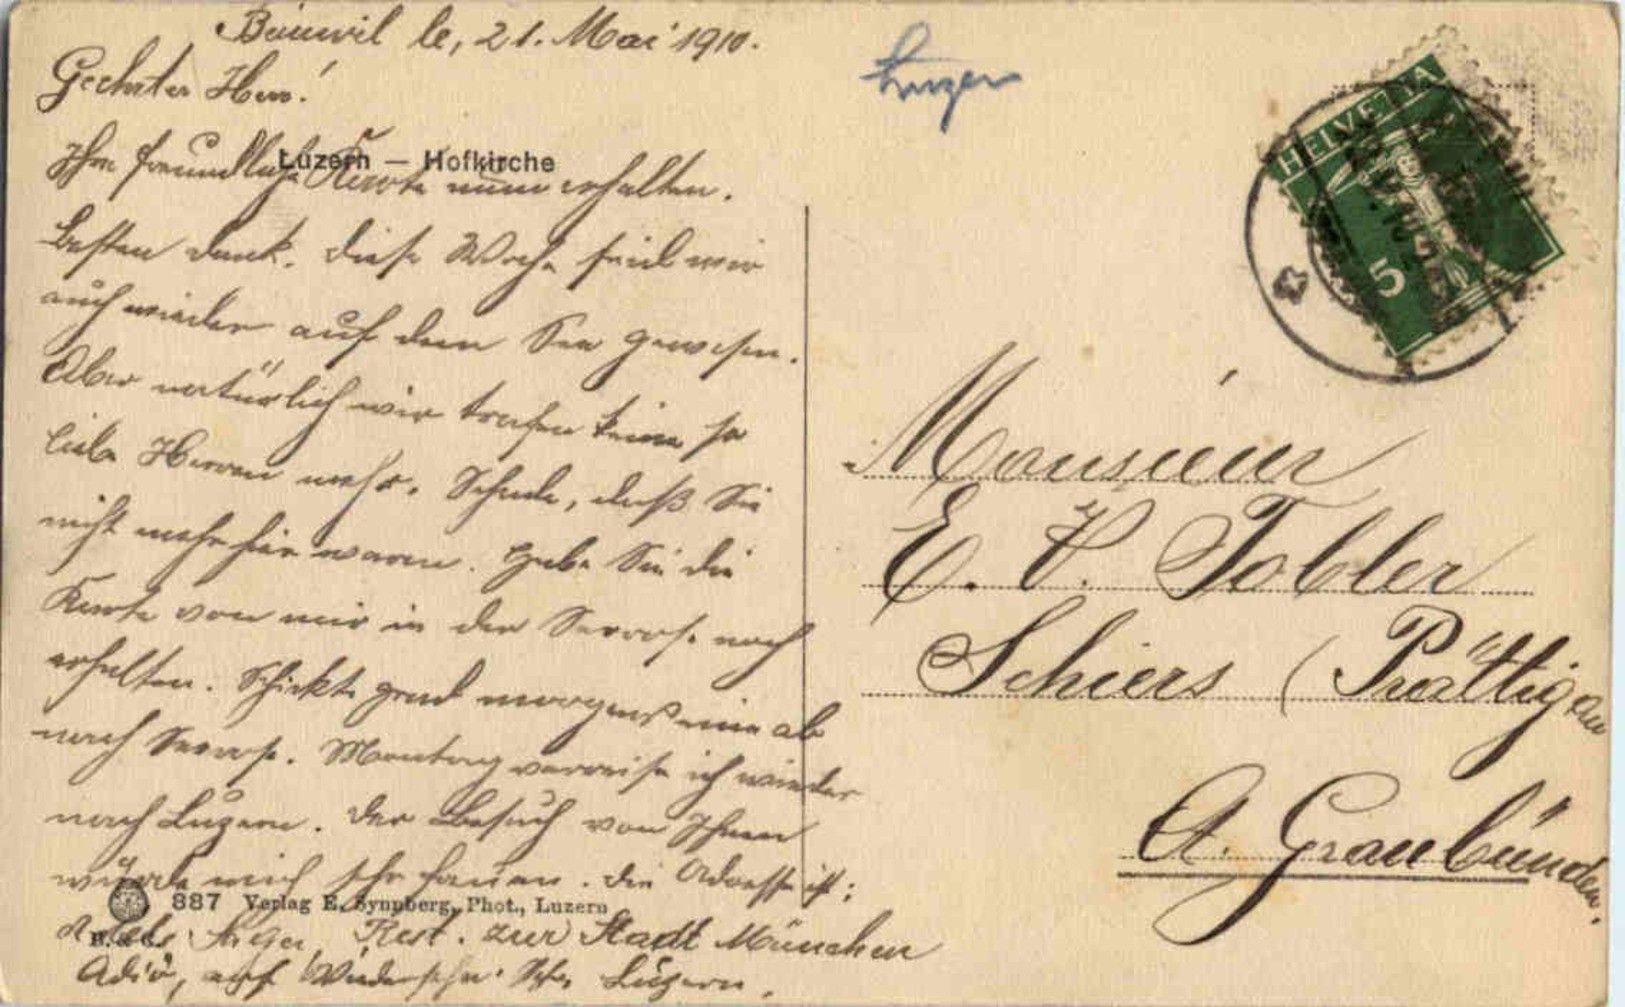 Beinwil le, 21. Mai 1910.
Geehrter Herr!
Luzern – Hofkirche
Ihre freundliche Karte nun erhalten.
Besten Dank. Diese Woche sind wir
auch wieder auf dem See gewesen.
Aber natürlich wir trafen keine so
liebe Herren mehr. Schade, daß Sie
nicht mehr hier waren. Habe Sie die
Karte von mir in der noch
erhalten. Schickte grad morgens eine ab
nach. Montag verreise ich wieder
nach Luzern. Der Besuch von Ihnen
würde mich sehr freuen. Die Adresse ist:
887 Verlag E. Synnberg, Phot., Luzern
Rest. zur Stadt München
Adiö, auf Wiedersehn. Luzern.
Luzern
HELVETIA
5
Monsieur
E. V. Tobler
Schiers (Prättigau
Ct. Graubünden.